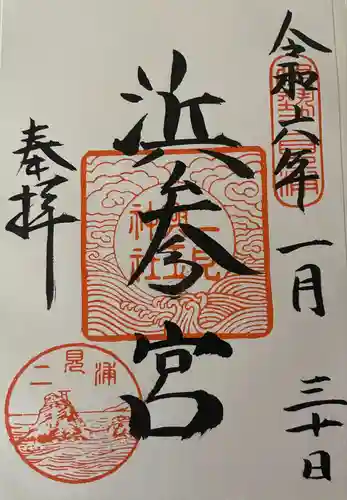 令和六年 一月 三十日
浜参宮
奉拝
二見
興玉
神社
二見浦